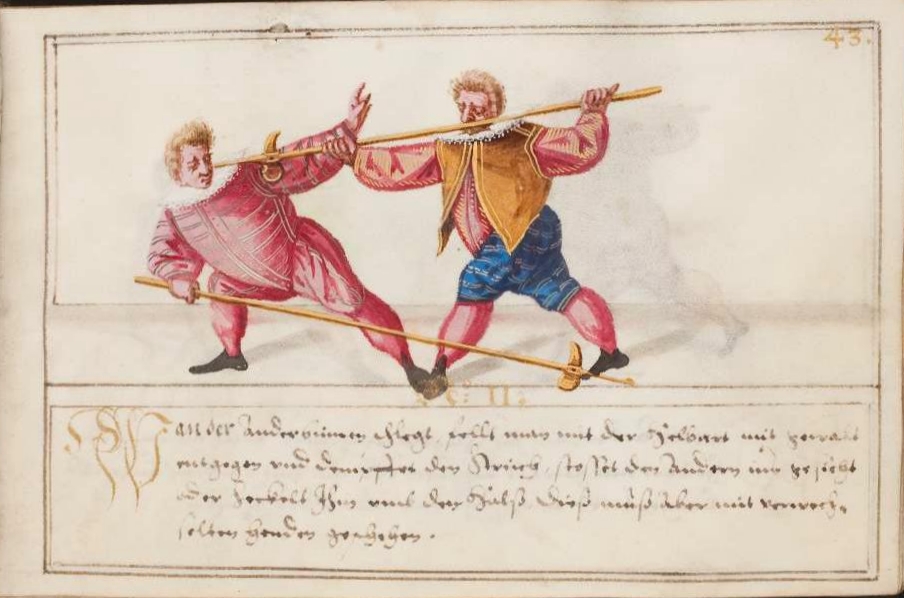 43.
II.
Wan der Ander hinnen schlegt, fellt man mit der Helbart mit gewalt
entgegen vnd dempffet den streich, stosset den Andern inn gesicht
oder heckelt Ihm vmb den halß, dieß muß aber mit verwech,
selten henden geschehen.